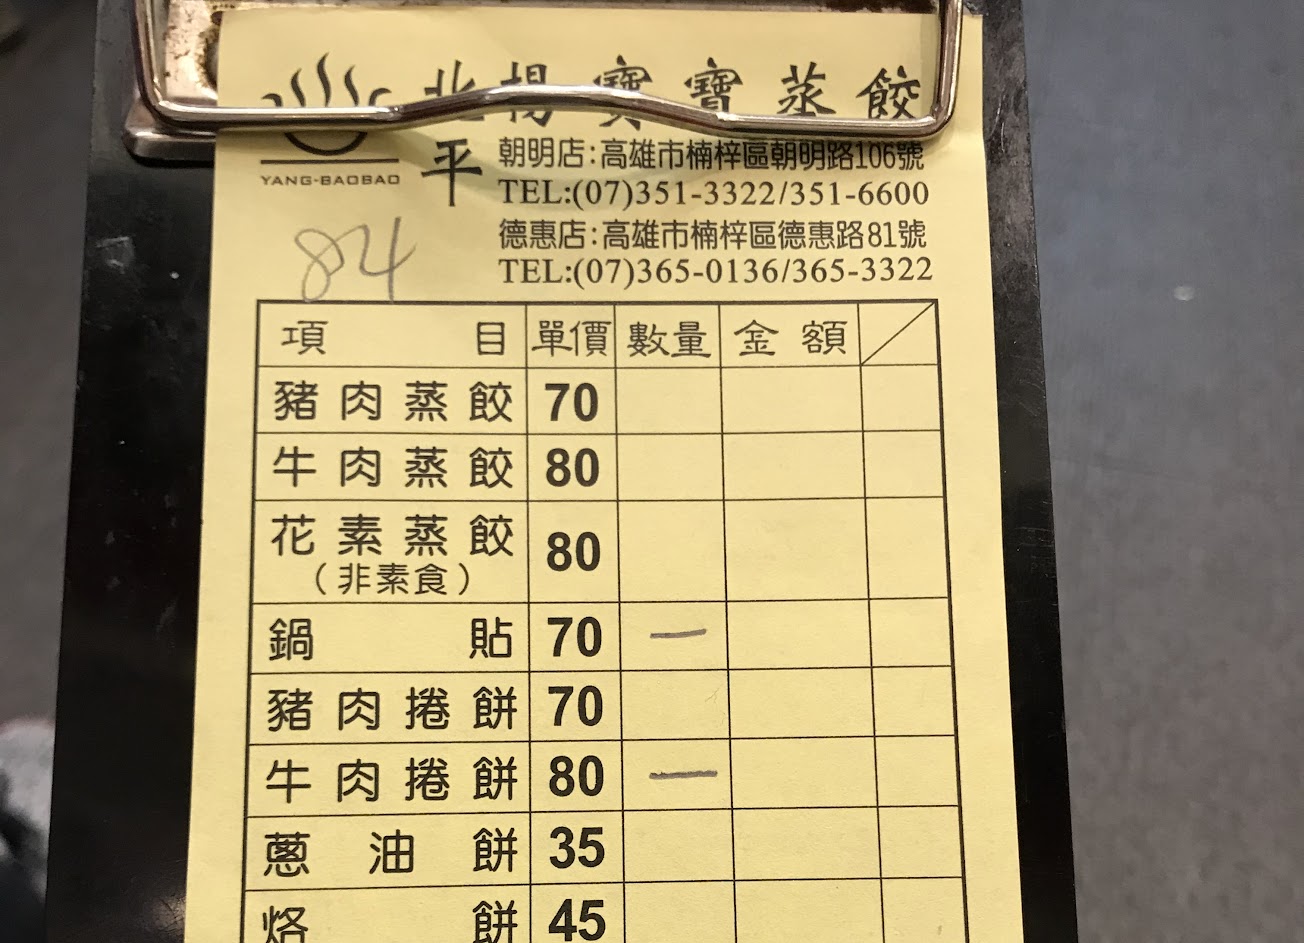 北平楊寶寶蒸餃
YANG-BAOBAO
朝明店:高雄市楠梓區朝明路106號
TEL:(07)351-3322/351-6600
德惠店:高雄市楠梓區德惠路81號
TEL:(07)365-0136/365-3322
84
項目 單價 數量 金額
豬肉蒸餃 70
牛肉蒸餃 80
花素蒸餃 80
(非素食)
鍋貼 70 一
豬肉捲餅 70
牛肉捲餅 80 一
蔥油餅 35
烙餅 45